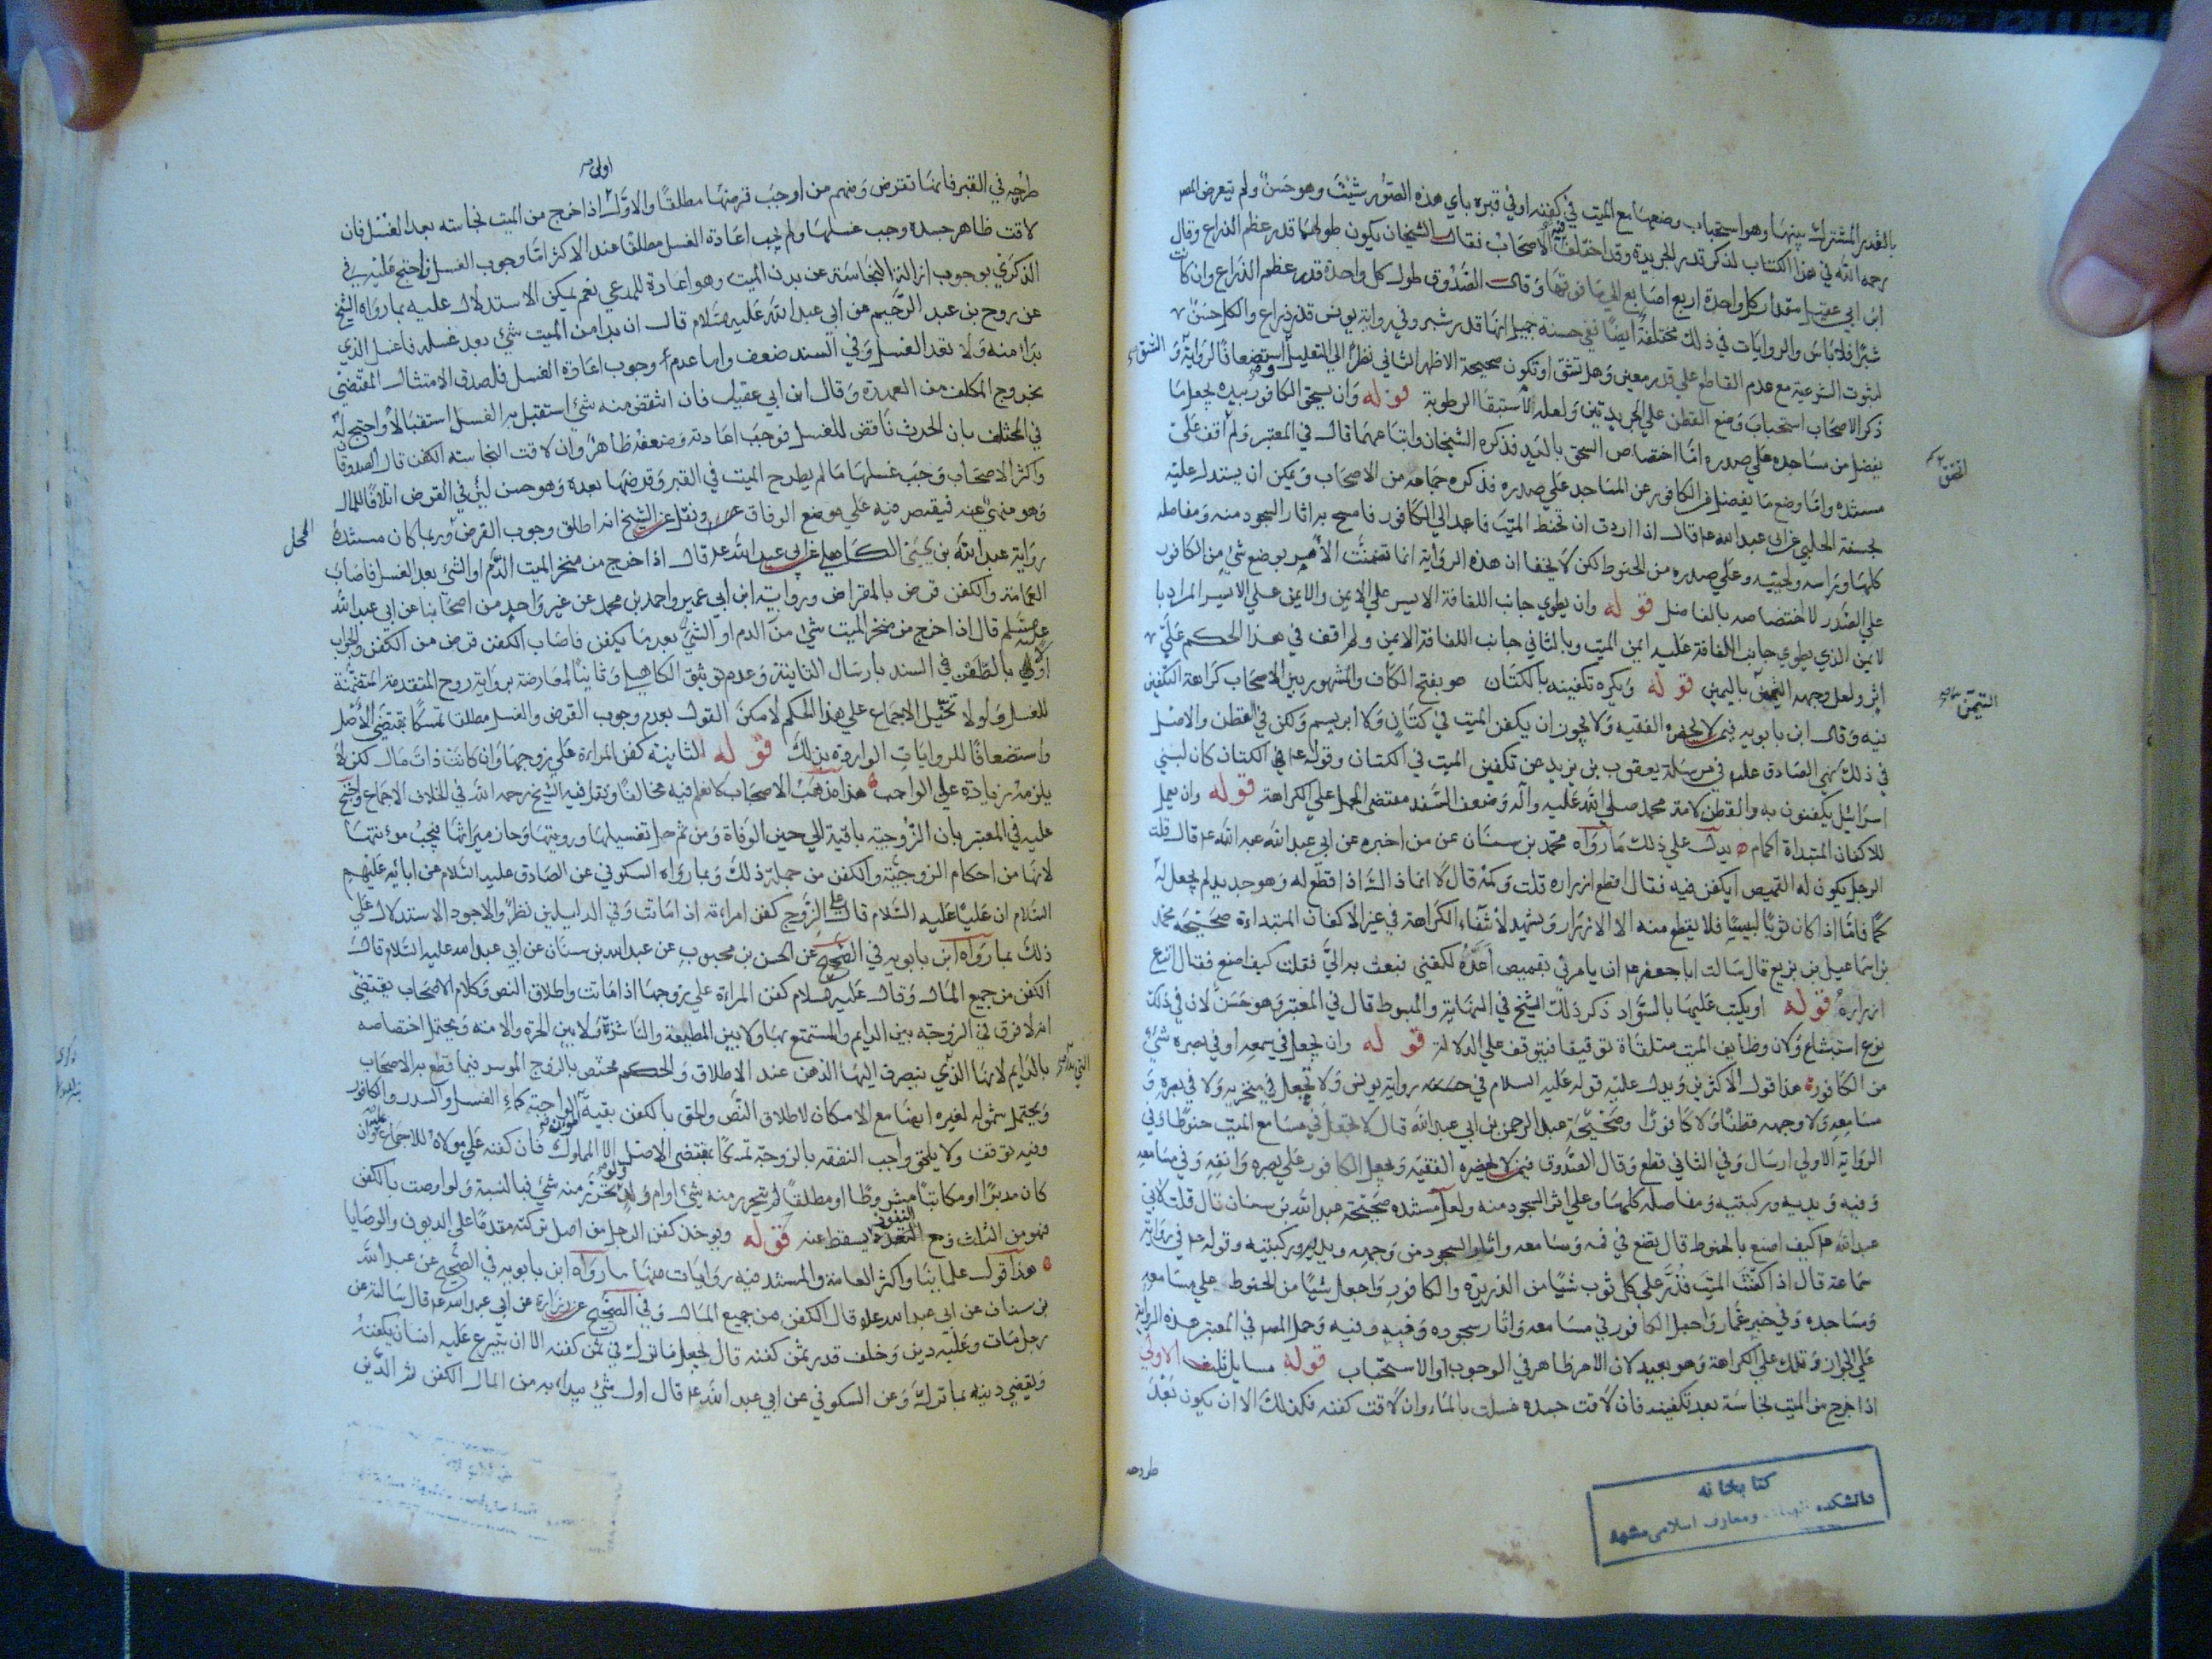 بالقدر المشترك بينها وهو استحباب وضعها مع الميت في كفنه او في قبره باي هذه الصور شئت وهو حسن ولم يتعرض المصر
رحمه الله في هذا الكتاب لذكر قدر الجريدة وقد اختلف فيه الاصحاب فقال الشيخان يكون طولهما قدر عظم الذراع وقال
ابن ابي عقيل مقدار كل واحدة اربع اصابع الى ما فوقها وقال الصدوق طول كل واحدة قدر عظم الذراع وان كانت
شبرا فلا باس والروايات في ذلك مختلفة ايضا ففي حسنة جميل انها قدر شبر وفي رواية يونس قدر ذراع والكل حسن
لثبوت الشرعية مع عدم القاطع على قدر معين وهل تشق او تكون صحيحة الاظهر الثاني نظرا الى التعليل واستضعافا لرواية الشق و
ذكر الاصحاب استحباب وضع القطن على الجريدتين ولعله لاستبقا الرطوبة قوله وان يسحق الكافور بيده يجعل ما
يفضل من مساجده على صدره اما اختصاص السحق باليد فذكره الشيخان واتباعهما قال في المعتبر ولم اقف على
مستنده واما وضع ما يفضل من الكافور عن المساجد على صدره فذكره جماعة من الاصحاب ويمكن ان يستدل عليه
بحسنة الحلبي عن ابي عبد الله ع قال اذا اردت ان تحنط الميت فاعمد الى الكافور فامسح به اثار السجود منه ومفاصله
كلها وراسه ولحيته وعلى صدره من الحنوط لكن لا يخفا ان هذه الرواية انما تضمنت الامر بوضع شيء من الكافور
على الصدر لا اختصاصه بالفاضل قوله وان يطوي جانب اللفافة الايسر على الايمن والايمن على الايسر المراد با
لايمن الذي يطوي جانب اللفافة عليه ايمن الميت وبالثاني جانب اللفافة الايمن ولم اقف في هذا الحكم على
اثر ولعل وجهه التيمن باليمين قوله ويكره تكفينه بالكتان هو بفتح الكاف والمشهور بين الاصحاب كراهة التكفين
فيه وقال ابن بابويه فيمن لا يحضره الفقيه ولا يجوز ان يكفن الميت في كتان ولا ابريسم ولكن في القطن والاصل
في ذلك نهي الصادق عليه في مرسلة يعقوب بن يزيد عن تكفين الميت في الكتان وقوله ع ان الكتان كان لبني
اسرائيل يكفنون به والقطن لامة محمد صلى الله عليه وآله وضعف السند مقتضى الحمل على الكراهة قوله وان يعمل
للاكفان المبتداة اكمام يدل على ذلك ما رواه محمد بن سنان عن من اخبره عن ابي عبد الله ع قال قلت
الرجل يكون له القميص ايكفن فيه فقال اقطع ازراره قلت وكمه قال لا انما ذاك اذا قطع له وهو جديد لم يجعل له
كما فاما اذا كان ثوبا لبيسا فلا يقطع منه الا الازرار ويشهد لانتفاء الكراهة في غير الاكفان المبتداة صحيحة محمد
بن اسماعيل بن بزيع قال سالت ابا جعفر ع ان يامر لي بقميص اعده لكفني فبعث به الي فقلت كيف اصنع فقال انزع
ازراره قوله او يكتب عليها بالسواد ذكر ذلك الشيخ في النهاية والمبسوط قال في المعتبر وهو حسن لان في ذلك
نوع استبشاع ولان وظايف الميت متلقاة توقيفا فيتوقف على الدلالة قوله وان يجعل في سمعه او في بصره شيء
من الكافور هذا قول الاكثرين ويدل عليه قوله عليه السلام في حسنة رواية يونس ولا تجعل في منخريه ولا في بصره و
مسامعه ولا وجهه قطنا ولا كافورا وصحيحة عبد الرحمن بن ابي عبد الله قال لا تجعل في مسامع الميت حنوطا وفي
الرواية الاولى ارسال وفي الثاني قطع وقال الصدوق فيمن لا يحضره الفقيه ويجعل الكافور على بصره وانفه وفي مسامعه
وفيه ويديه وركبتيه ومفاصله كلها وعلى اثر السجود منه ولعل مستنده صحيحة عبد الله بن سنان قال قلت لابي
عبد الله ع كيف اصنع بالحنوط قال يضع في فمه ومسامعه واثار السجود من وجهه ويديه وركبتيه وقوله ع في رواية
سماعة قال اذا كفنت الميت فذر على كل ثوب شيئا من الذريرة والكافور واجعل شيئا من الحنوط على مسامعه
ومساجده وفي خبر عمار واجعل الكافور في مسامعه واثار سجوده وفيه وفيه وحمل المصر في المعتبر هذه الرواية
على الجواز وتلك على الكراهة وهو بعيد لان الامر ظاهر في الوجوب او الاستحباب قوله مسايل ثلث الاولى
اذا خرج من الميت نجاسة بعد تكفينه فان لاقت جسده غسلت بالماء وان لاقت كفنه فكذلك الا ان يكون بعد
طرحه
كتابخانه
دانشكده الهيات ومعارف اسلامى مشهد
طرحه في القبر فانها تقرض ومنهم من اوجب قرضها مطلقا والاول اولى اذا خرج من الميت نجاسة بعد الغسل فان
لاقت ظاهر جسده وجب غسلها ولم يجب اعادة الغسل مطلقا عند الاكثر اما وجوب الغسل فاحتج عليه في
الذكرى بوجوب ازالة النجاسة عن بدن الميت وهو اعادة للمدعى نعم يمكن الاستدلال عليه بما رواه الشيخ
عن روح بن عبد الرحيم عن ابي عبد الله عليه سلام قال ان بدا من الميت شيء بعد غسله فاغسل الذي
بدا منه ولا تعد الغسل وفي السند ضعف واما عدم وجوب اعادة الغسل فلصدق الامتثال المقتضي
بخروج المكلف من العهدة وقال ابن ابي عقيل فان انتقض منه شيء استقبل به الغسل استقبالا واحتج له
في المختلف بان الحدث ناقض للغسل فوجب اعادته وضعفه ظاهر وان لاقت النجاسة الكفن قال الصدوقان
واكثر الاصحاب وجب غسلها ما لم يطرح الميت في القبر وقرضها بعده وهو حسن لبن في القرض اتلافا للمال
وهو منهي عنه فيقتصر فيه على موضع الوفاق ونقل عن الشيخ انه اطلق وجوب القرض وربما كان مستنده
رواية عبد الله بن يحيى الكاهلي عن ابي عبد الله ع قال اذا خرج من منخر الميت الدم او الشيء بعد الغسل فاصاب
العمامة والكفن قرض بالمقراض ورواية ابن ابي عمير واحمد بن محمد عن غير واحد من اصحابنا عن ابي عبد الله
عليه سلم قال اذا خرج من منخر الميت شيء من الدم او الشيء بعد ما يكفن فاصاب الكفن قرض من الكفن والجواب
اولا بالطعن في السند بارسال الثانية وعدم توثيق الكاهلي وثانيا لمعارضة برواية روح المتقدمة المتضمنة
للغسل ولولا تخيل الاجماع على هذا الحكم لامكن القول بعدم وجوب القرض والغسل مطلقا تمسكا بمقتضى الاصل
واستضعافا للروايات الواردة بذلك قوله الثانية كفن المراءة على زوجها وان كانت ذات مال لكن لا
يلزمه زيادة على الواجب هذا مذهب الاصحاب لا نعلم فيه مخالفا ونقل فيه الشيخ رحمه الله في الخلاف الاجماع واحتج
عليه في المعتبر بان الزوجية باقية الى حين الوفاة ومن ثم حل تغسيلها ورويتها وحاز ميراثها فيجب مؤنتها
لانها من احكام الزوجية والكفن من جملة ذلك وبما رواه السكوني عن الصادق عليه السلام عن ابائه عليهم
السلام ان عليا عليه السلام قال على الزوج كفن امراءته اذا ماتت وفي الدليلين نظر والاجود الاستدلال على
ذلك بما رواه ابن بابويه في الصحيح عن الحسن بن محبوب عن عبد الله بن سنان عن ابي عبد الله عليه السلام قال
الكفن من جميع المال وقال عليه سلام كفن المراءة على زوجها اذا ماتت واطلاق النص وكلام الاصحاب يقتضي
انه لا فرق في الزوجة بين الدايم والمستمتع بها ولا بين المطيعة والناشزة ولا بين الحرة والامة ويحتمل اختصاصه
بالدايم لانها التي ينصرف اليها الذهن عند الاطلاق والحكم مختص بالزوج الموسر فيما قطع به الاصحاب
ويحتمل شموله لغيره ايضا مع الامكان لاطلاق النص والحق بالكفن بقية المؤن الواجبة كماء الغسل والسدر والكافور
وفيه توقف ولا يلحق واجب النفقة بالزوجة تمسكا بمقتضى الاصل الا المملوك فان كفنه على مولاه للاجماع عليه وان
كان مدبرا او مكاتبا مشروطا او مطلقا لم يتحرر منه شيء او ام ولد ولو تحرر منه شيء فبالنسبة ولو اوصت بالكفن
فهو من الثلث ومع النفوذ يسقط عنه قوله ويوخذ كفن الرجل من اصل تركته مقدما على الديون والوصايا
هذا قول علمائنا واكثر العامة والمستند فيه روايات منها ما رواه ابن بابويه في الصحيح عن عبد الله
بن سنان عن ابي عبد الله ع قال الكفن من جميع المال وفي الصحيح عن زرارة عن ابي عبد الله ع قال سالته عن
رجل مات وعليه دين وخلف قدر ثمن كفنه قال يجعل ما ترك في ثمن كفنه الا ان يتبرع عليه انسان يكفنه
ويقضي دينه بما ترك وعن السكوني عن ابي عبد الله ع قال اول شيء يبداء به من المال الكفن ثم الدين